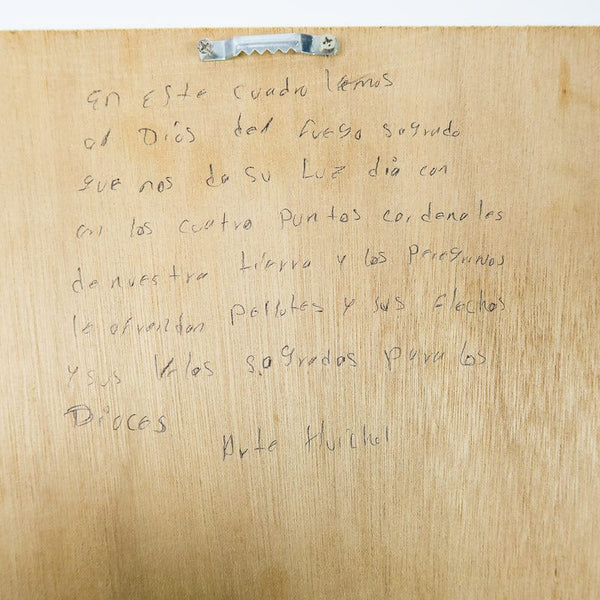 En Este cuadro lemos
al Dios del fuego sagrado
que nos da su Luz dia con
en los cuatro puntos cardenales
de nuestra tierra y los peregrinos
le ofrendan pellotes y sus flechas
y sus Velas sagradas para los
Dioces
Arte Huichol